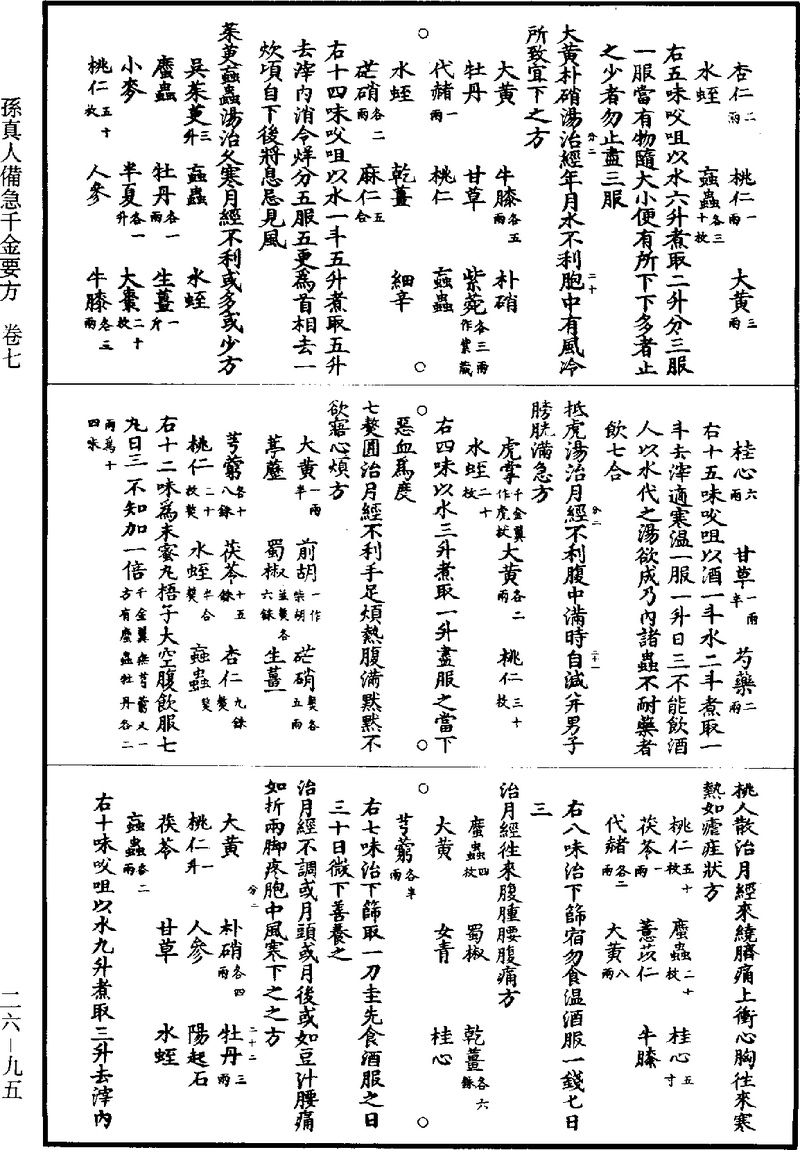 杏仁二兩 桃仁一兩 大黃三兩
水蛭 蝱蟲各三十枚
右五味㕮咀以水六升煮取二升分三服
一服當有物隨大小便有所下下多者止
之少者勿止盡三服
大黃朴硝湯治經年月水不利胞中有風冷
所致宜下之方
大黃 牛膝各五兩 朴硝
牡丹 甘草 紫菀各三兩作紫葳
代赭一兩 桃仁 蝱蟲
水蛭 乾薑 細辛
芒硝各二兩 麻仁五合
右十四味㕮咀以水一斗五升煮取五升
去滓內消令烊分五服五更為首相去一
炊頃自下後將息忌見風
茱萸蝱蟲湯治久寒月經不利或多或少方
吳茱萸三升 蝱蟲 水蛭
䗪蟲 牡丹各一兩 生薑一斤
小麥 半夏各一升 大棗二十枚
桃仁五十枚 人參 牛膝各三兩
桂心六兩 甘草一兩半 芍藥二兩
右十五味㕮咀以酒一斗水二斗煮取一
斗去滓適寒溫一服一升日三不能飲酒
人以水代之湯欲成乃內諸蟲不耐藥者
飲七合
抵虎湯治月經不利腹中滿時自減并男子
膀胱滿急方
虎掌千金翼作虎杖 大黃各二兩 桃仁三十枚
水蛭二十枚
右四味以水三升煮取一升盡服之當下
惡血為度
七熬圓治月經不利手足煩熱腹滿默默不
欲寤心煩方
大黃一兩半 前胡一作柴胡 芒硝熬各五兩
葶藶 蜀椒並熬各六銖 生薑
芎藭各十八銖 茯苓十五銖 杏仁九銖熬
桃仁二十枚熬 水蛭半合熬 蝱蟲熬
右十二味為末蜜丸梧子大空腹飲服七
丸日三不知加一倍千金翼無芎藭又一方有䗪蟲牡丹各二
兩為十四味
桃人散治月經來繞臍痛上衝心胸往來寒
熱如瘧疰狀方
桃仁五十枚 䗪蟲二十枚 桂心五寸
茯苓一兩 薏苡仁 牛膝
代赭各二兩 大黃八兩
右八味治下篩宿勿食溫酒服一錢七日
三
治月經往來腹腫腰腹痛方
䗪蟲四枚 蜀椒 乾薑各六銖
大黃 女青 桂心
芎藭各半兩
右七味治下篩取一刀圭先食酒服之日
三十日微下善養之
治月經不調或月頭或月後或如豆汁腰痛
如折兩腳疼胞中風寒下之之方
大黃 朴硝各四兩 牡丹三兩
桃仁一升 人參 陽起石
茯苓 甘草 水蛭
蝱蟲各二兩
右十味㕮咀以水九升煮取三升去滓內
孫真人備急千金要方 卷七
二六－九五